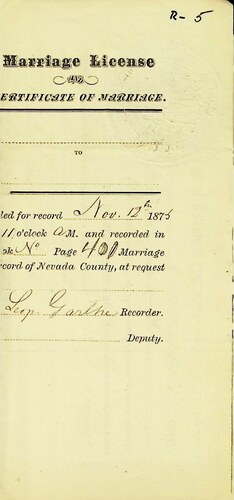 R - 5
Marriage License
AND
ERTIFICATE OF MARRIAGE.
TO
led for record Nov. 12th 1875
11 o'clock A M. and recorded in
ok No Page 400 Marriage
ecord of Nevada County, at request
Leop. Garthe Recorder.
Deputy.